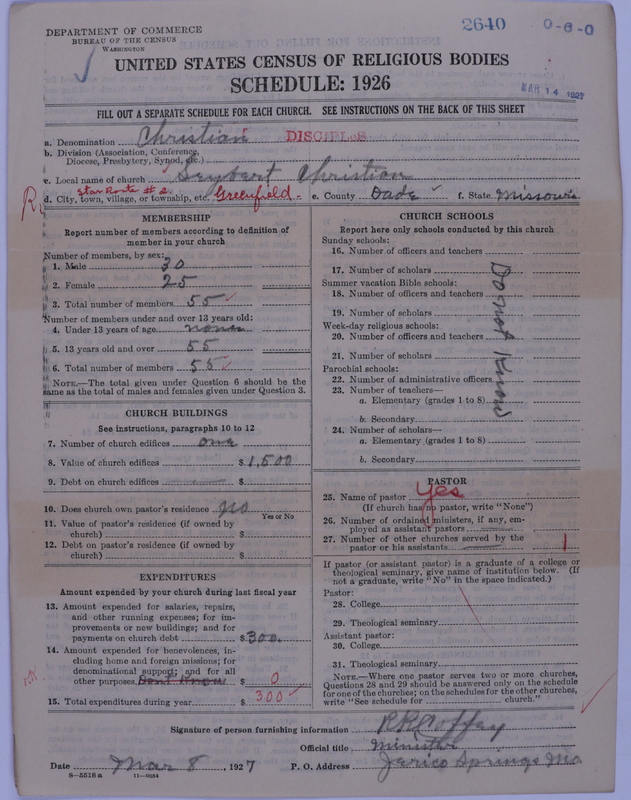 DEPARTMENT OF COMMERCE
BUREAU OF THE CENSUS
WASHINGTON
2640 0-6-0
UNITED STATES CENSUS OF RELIGIOUS BODIES
SCHEDULE: 1926
MAR 14 1927
FILL OUT A SEPARATE SCHEDULE FOR EACH CHURCH. SEE INSTRUCTIONS ON THE BACK OF THIS SHEET
a. Denomination Christian DISCIPLES
b. Division (Association, Conference, Diocese, Presbytery, Synod, etc.)
c. Local name of church Seybert Christian
Star Route #2
d. City, town, village, or township, etc. Greenfield e. County Dade f. State Missouri
MEMBERSHIP
Report number of members according to definition of member in your church
Number of members, by sex:
1. Male 30
2. Female 25
3. Total number of members 55
Number of members under and over 13 years old:
4. Under 13 years of age none
5. 13 years old and over 55
6. Total number of members 55
NOTE.—The total given under Question 6 should be the same as the total of males and females given under Question 3.
CHURCH BUILDINGS
See instructions, paragraphs 10 to 12
7. Number of church edifices one
8. Value of church edifices $1,500
9. Debt on church edifices $
10. Does church own pastor's residence No
Yes or No
11. Value of pastor's residence (if owned by church) $
12. Debt on pastor's residence (if owned by church) $
EXPENDITURES
Amount expended by your church during last fiscal year
13. Amount expended for salaries, repairs, and other running expenses; for improvements or new buildings; and for payments on church debt $300.
14. Amount expended for benevolences, including home and foreign missions; for denominational support; and for all other purposes Dont Know $ 0
15. Total expenditures during year $ 300
CHURCH SCHOOLS
Report here only schools conducted by this church
Sunday schools:
16. Number of officers and teachers
17. Number of scholars
Summer vacation Bible schools:
18. Number of officers and teachers
19. Number of scholars
Week-day religious schools:
20. Number of officers and teachers
21. Number of scholars
Parochial schools:
22. Number of administrative officers
23. Number of teachers—
a. Elementary (grades 1 to 8)
b. Secondary
24. Number of scholars—
a. Elementary (grades 1 to 8)
b. Secondary
Do not Know
PASTOR
25. Name of pastor Yes
(If church has no pastor, write "None")
26. Number of ordained ministers, if any, employed as assistant pastors
27. Number of other churches served by the pastor or his assistants 1
If pastor (or assistant pastor) is a graduate of a college or theological seminary, give name of institution below. (If not a graduate, write "No" in the space indicated.)
Pastor:
28. College
29. Theological seminary
Assistant pastor:
30. College
31. Theological seminary
NOTE.—Where one pastor serves two or more churches, Questions 28 and 29 should be answered only on the schedule for one of the churches; on the schedules for the other churches, write "See schedule for church."
Signature of person furnishing information R R Coffey
Official title Minister
Date Mar 8, 1927 P. O. Address Jerico Springs Mo
8-5518 a 11-9084